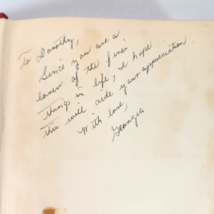 To Dorothy,
Since you are a
lover of the finer
things in life, I hope
this will aide your appreciation.
With love,
Georgia